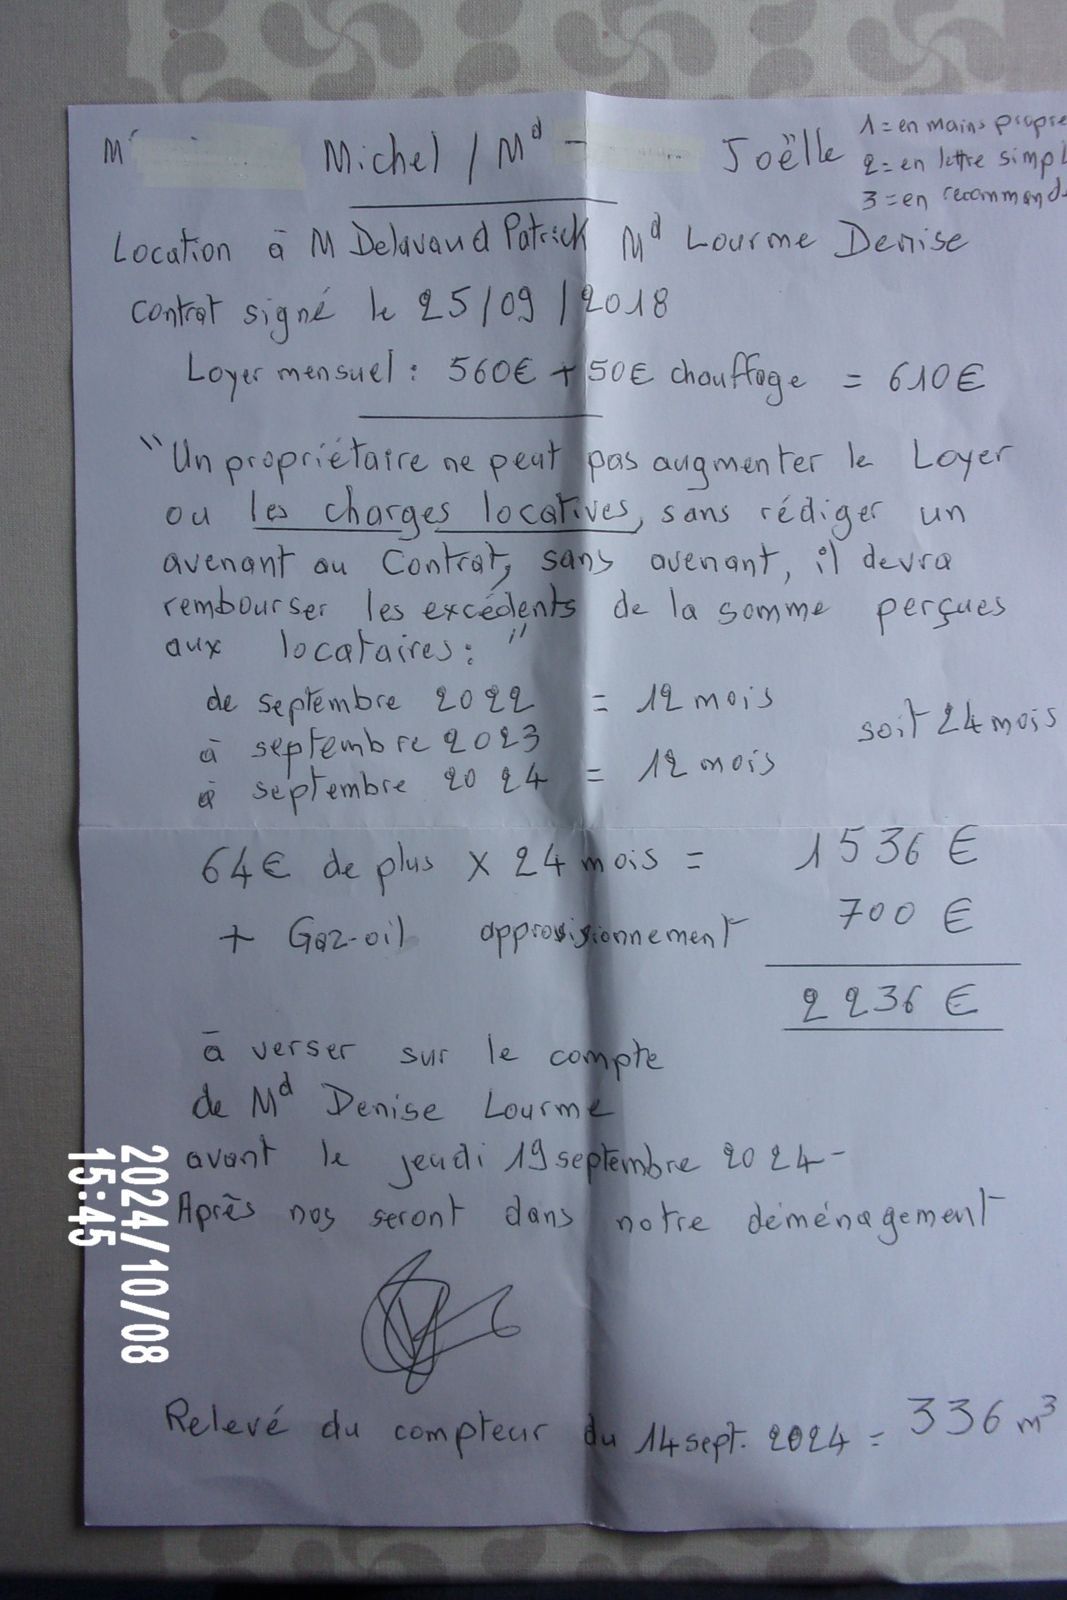 Mr Michel / Md - Joëlle
1 = en mains propre
2 = en lettre simpl
3 = en recommand
Location à M Delavaud Patrick Md Lourme Denise
Contrat signé le 25/09/2018
Loyer mensuel : 560€ + 50€ chauffage = 610€
"Un propriétaire ne peut pas augmenter le Loyer
ou les charges locatives, sans rédiger un
avenant au Contrat, sans avenant, il devra
rembourser les excédents de la somme perçues
aux locataires : "
de septembre 2022 = 12 mois
à septembre 2023
soit 24 mois
à septembre 2024 = 12 mois
64€ de plus x 24 mois = 1536 €
+ Gaz-oil approvisionnement 700 €
2236 €
à verser sur le compte
de Md Denise Lourme
avant le jeudi 19 septembre 2024 -
Après nos seront dans notre déménagement
Relevé du compteur du 14 sept. 2024 = 336 m³
2024/10/08
15:45